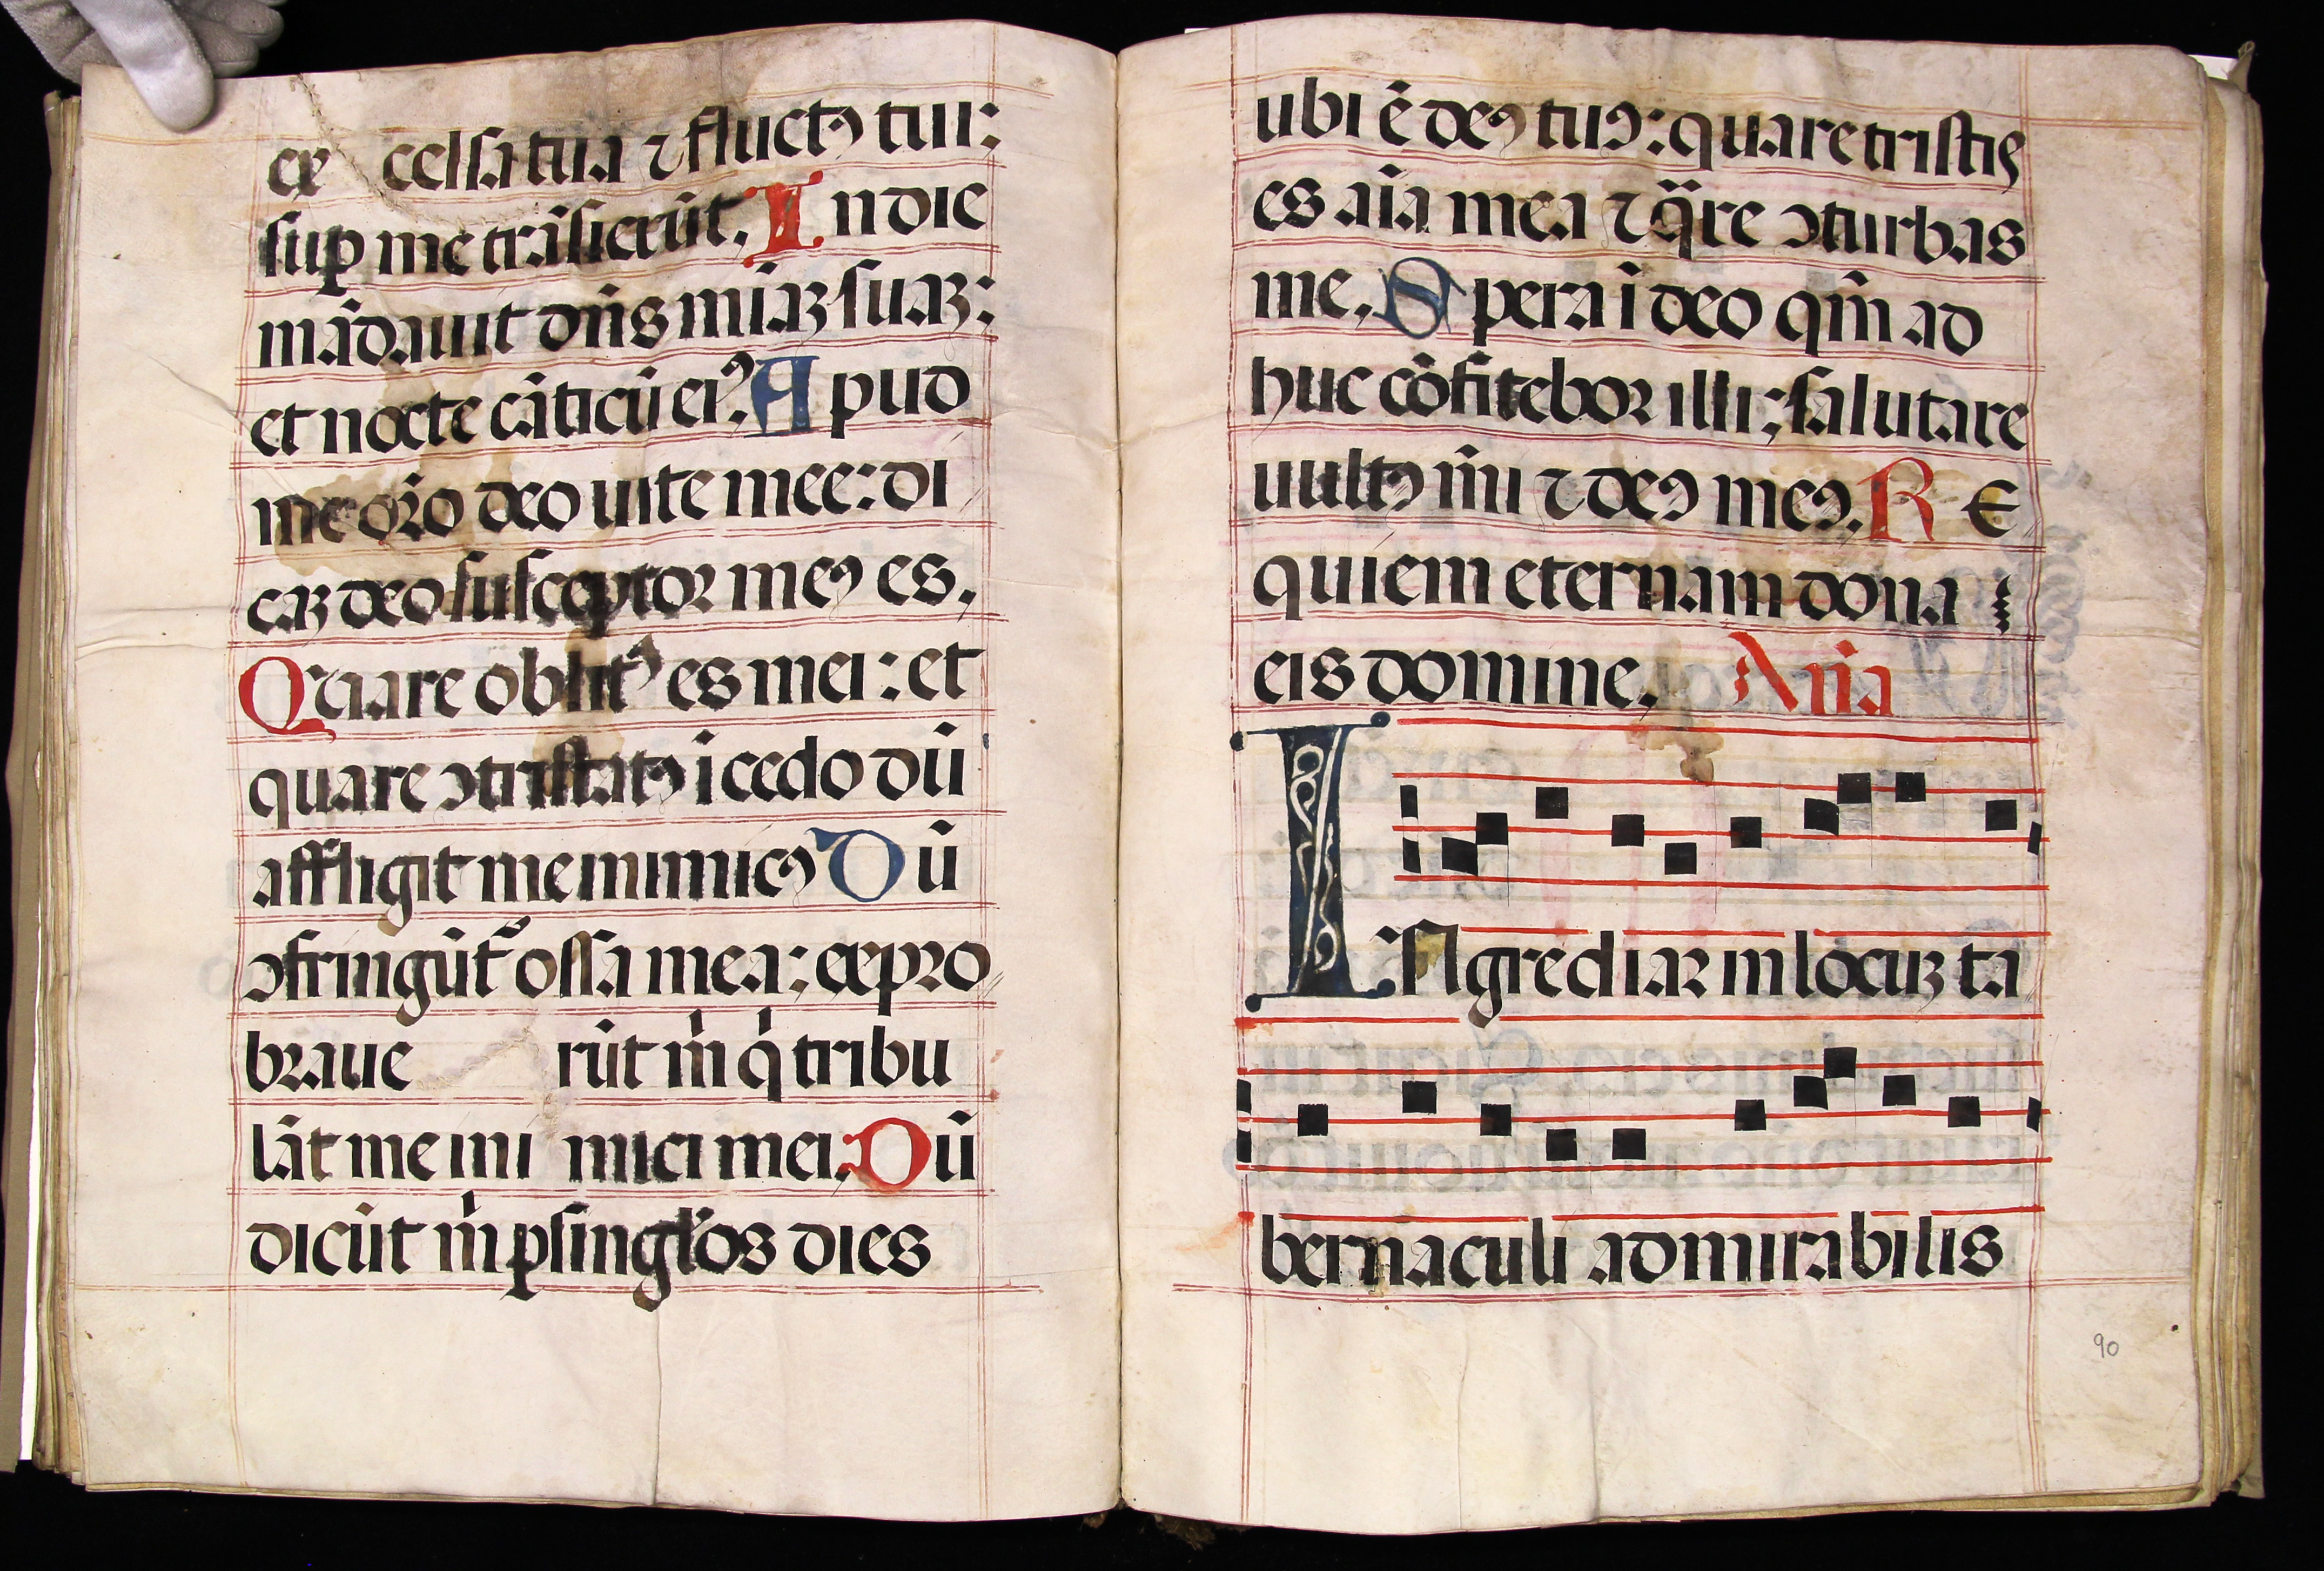 ex celsa tua ⁊ fluctꝰ tui:
suꝑ me trāsierūt. In die
mādauit dn̄s miāꝫ suaꝫ:
et nocte cāticū eiꝰ. Apud
me or̄o deo uite mee: di
caꝫ deo susceptor meꝰ es.
Quare oblitꝰ es mei: et
quare ↄtristatꝰ īcedo dū
affligit me inimicꝰ Dū
ↄfringūt̄ ossa mea: expro
braue rūt m̄ q̄ tribu
lāt me ini mici mei. Dū
dicūt m̄ ꝑ singl̄os dies
ubi ē deꝰ tuꝰ: quare tristis
es aīa mea ⁊ q̄re ↄturbas
me. Spera ī deo qm̄ ad
huc cōfitebor illi; salutare
uultꝰ m̄i ⁊ deꝰ meꝰ. RE
quiem eternam dona
eis domine. Aña
INgrediar in locuꝫ ta
bernaculi admirabilis
90